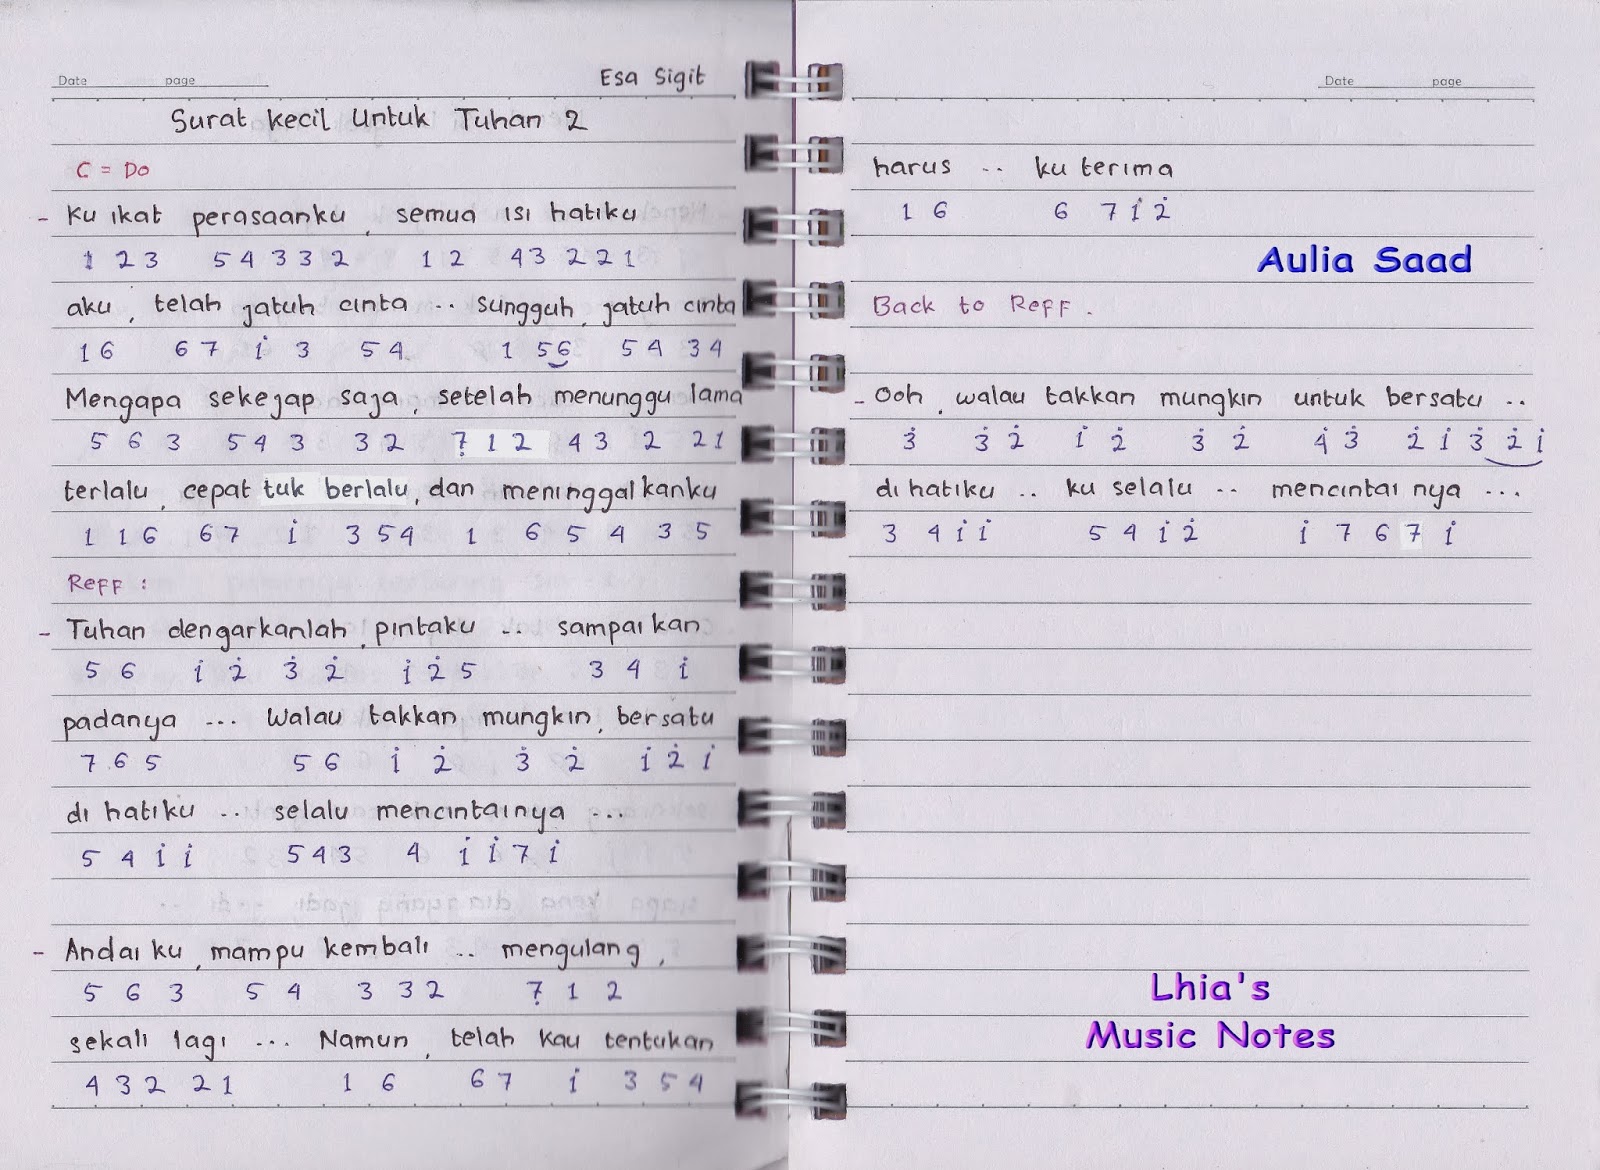 Date page Esa Sigit
Surat Kecil Untuk Tuhan 2
C = Do
- Ku ikat perasaanku, semua isi hatiku
1 2 3 5 4 3 3 2 1 2 4 3 2 2 1
aku, telah jatuh cinta .. sungguh, jatuh cinta
1 6 6 7 1̇ 3 5 4 1 5 6 5 4 3 4
Mengapa sekejap saja, setelah menunggu lama
5 6 3 5 4 3 3 2 7̣ 1 2 4 3 2 2 1
terlalu, cepat tuk berlalu, dan meninggalkanku
1 1 6 6 7 1̇ 3 5 4 1 6 5 4 3 5
Reff :
- Tuhan dengarkanlah, pintaku .. sampaikan
5 6 1̇ 2̇ 3̇ 2̇ 1̇ 2̇ 5 3 4 1̇
padanya ... walau takkan mungkin, bersatu
7 6 5 5 6 1̇ 2̇ 3̇ 2̇ 1̇ 2̇ 1̇
di hatiku .. selalu mencintainya ...
5 4 1̇ 1̇ 5 4 3 4 1̇ 1̇ 7 1̇
- Andai ku, mampu kembali .. mengulang,
5 6 3 5 4 3 3 2 7̣ 1 2
sekali lagi ... Namun, telah kau tentukan
4 3 2 2 1 1 6 6 7 1̇ 3 5 4
Date page
harus .. ku terima
1 6 6 7 1̇ 2̇
Aulia Saad
Back to Reff.
- Ooh, walau takkan mungkin untuk bersatu ..
3̇ 3̇ 2̇ 1̇ 2̇ 3̇ 2̇ 4̇ 3̇ 2̇ 1̇ 3̇ 2̇ 1̇
di hatiku .. ku selalu .. mencintai nya ...
3 4 1̇ 1̇ 5 4 1̇ 2̇ 1̇ 7 6 7 1̇
Lhia's
Music Notes